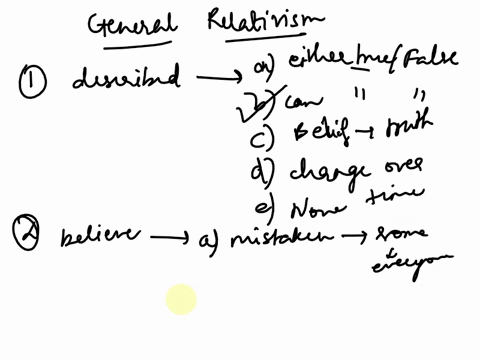 General Relativism
① described → a) either true/False
b) can " "
c) Belief → truth
d) change over time
e) None
② believe → a) mistaken → some
everyon